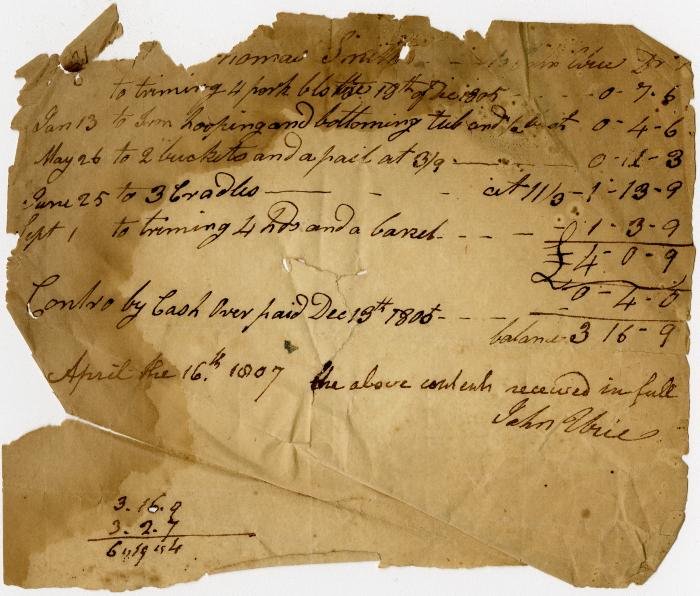 Smith Dr
to triming 4 pork bls the 19th of Dec 1805 - - 0 - 7 - 6
Jan 13 to Iron hooping and bottoming tub and 0 - 4 - 6
May 26 to 2 buckets and a pail at 3/9 - 0 - 11 - 3
June 25 to 3 Cradles - - - at 11/3 - 1 - 13 - 9
Sept 1 to triming 4 hds and a barrel - - - 1 - 3 - 9
£ 4 - 0 - 9
Contro by Cash Over paid Dec 19th 1805 - - - 0 - 4 -
balance 3 16 - 9
April the 16th 1807 the above contents received in full
John Ebrie
3 . 16 . 9
3 - 2 - 7
6 19 4